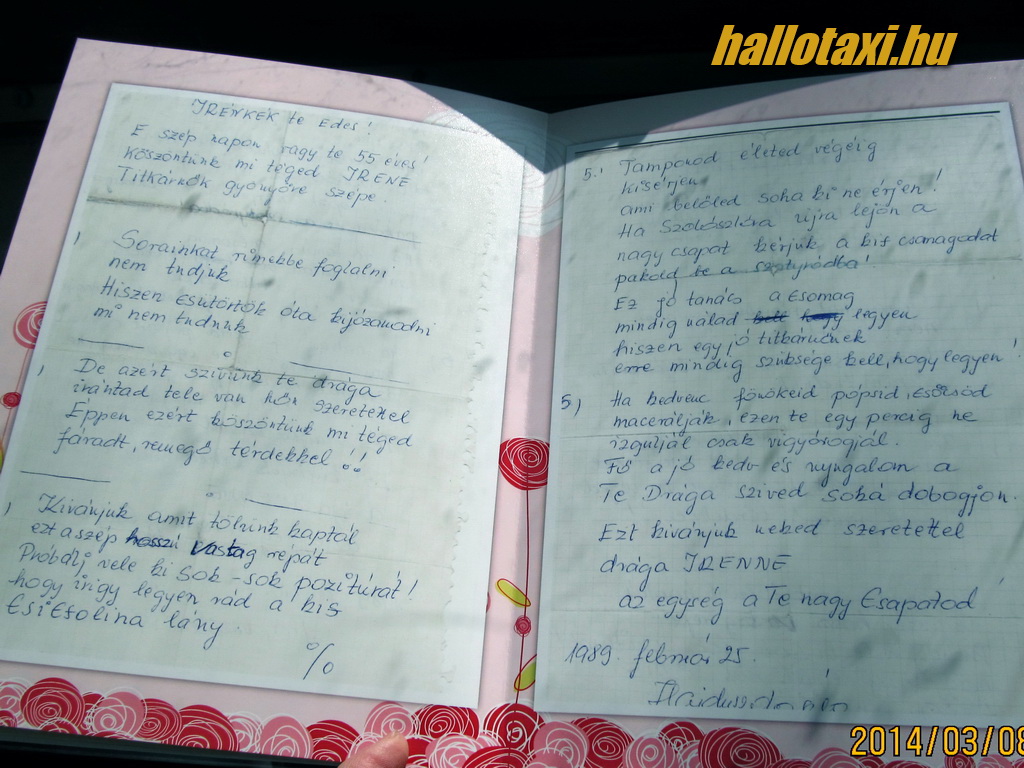 hallotaxi.hu
IRENKÉK te Edes!
E szép napon, vagy te 55 éves!
Köszöntünk mi téged IRENE
Titkárnők gyönyöre szépe.
Sorainkat rímekbe foglalni
nem tudjuk
Hiszen csütörtök óta kijózanodni
mi nem tudunk
De azért szivünk te drága
irántad tele van hőn szeretettel
Eppen ezért köszöntünk mi téged
fáradt, remegő térdekkel!!
Kivánjuk amit tőlünk kaptál
ezt a szép hosszú vastag répát
Próbálj vele ki sok-sok pozitúrát!
hogy irigy legyen rád a kis
Csicsolina lány.
%
5. Tamponod életed végéig
kisérjen
ami belőled soha ki ne érjen!
Ha Szoboszlóra ujra lejön a
nagy csapat kérjük a kis csomagodat
pakold be a szatyrodba!
Ez jó tanács a csomag
mindig nálad kell hogy legyen
hiszen egy jó titkárnőnek
erre mindig szüksége kell, hogy legyen!
5) Ha kedvenc főnökeid pópsid, csöcsöd
macerálják, ezen te egy percig ne
izguljál csak vigyorogjál.
Fő a jó kedv és nyugalom a
Te Drága szived soká dobogjon.
Ezt kivánjuk neked szeretettel
drága IRENNE
az egység a Te nagy Csapatod
1989. február 25.
2014/03/08